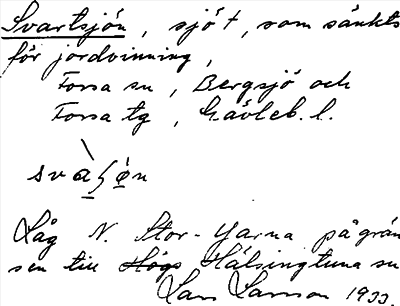 Svartsjön, sjö †, som sänkts
för jordvinning,
Forsa sn, Bergsjö och
Forsa tg, Gävleb. l.
svaʃɵ̀n
Låg N. Stor-Yarna på grän
sen till Högs Hälsingtuna sn
Lars Larsson 1933.